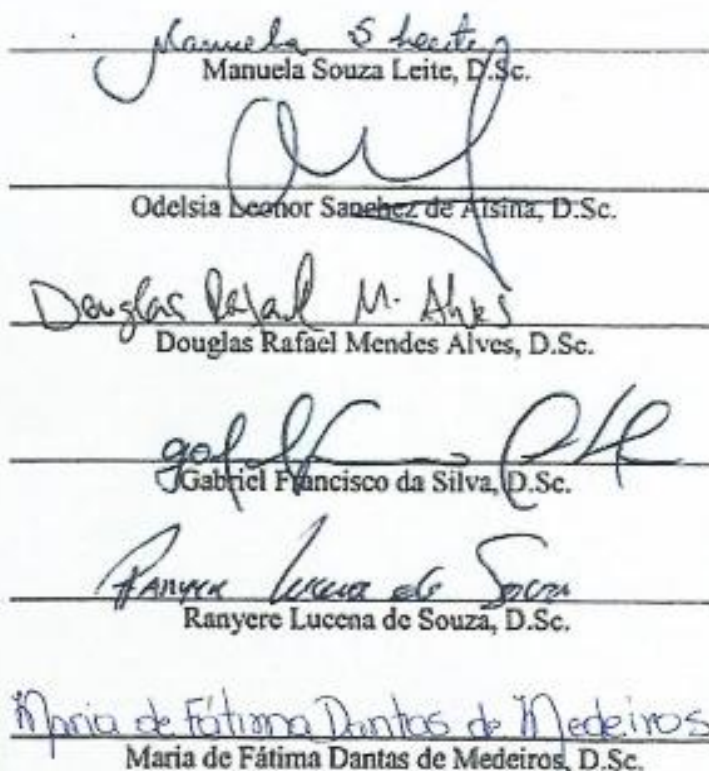 Manuela S Leite
Manuela Souza Leite, D.Sc.
Odelsia Leonor Sanchez de Alsina, D.Sc.
Douglas Rafael M. Alves
Douglas Rafael Mendes Alves, D.Sc.
Gabriel Francisco da Silva, D.Sc.
Ranyere Lucena de Souza
Ranyere Lucena de Souza, D.Sc.
Maria de Fátima Dantas de Medeiros
Maria de Fátima Dantas de Medeiros, D.Sc.